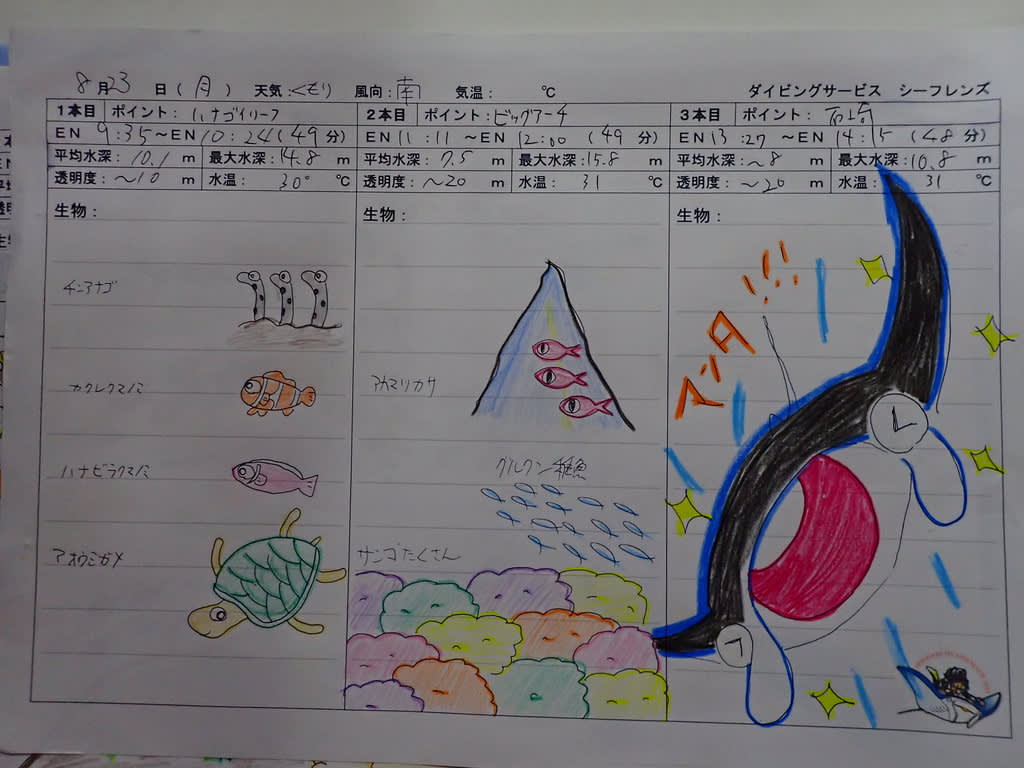 8月23日(月) 天気:くもり 風向:南 気温: ℃ ダイビングサービス シーフレンズ
1本目 ポイント: ハナゴイリーフ
EN 9:35~EN 10:24(49分)
平均水深: 10.1 m 最大水深: 14.8 m
透明度: ~10 m 水温: 30° ℃
生物:
チンアナゴ
カクレクマノミ
ハナビラクマノミ
アオウミガメ
2本目 ポイント: ビッグアーチ
EN 11:11~EN 12:00(49分)
平均水深: 7.5 m 最大水深: 15.8 m
透明度: ~20 m 水温: 31 ℃
生物:
アカマツカサ
グルクン稚魚
サンゴたくさん
3本目 ポイント: 石崎
EN 13:27~EN 14:15(48分)
平均水深: ~8 m 最大水深: 10.8 m
透明度: ~20 m 水温: 31 ℃
生物:
マンタ!!!